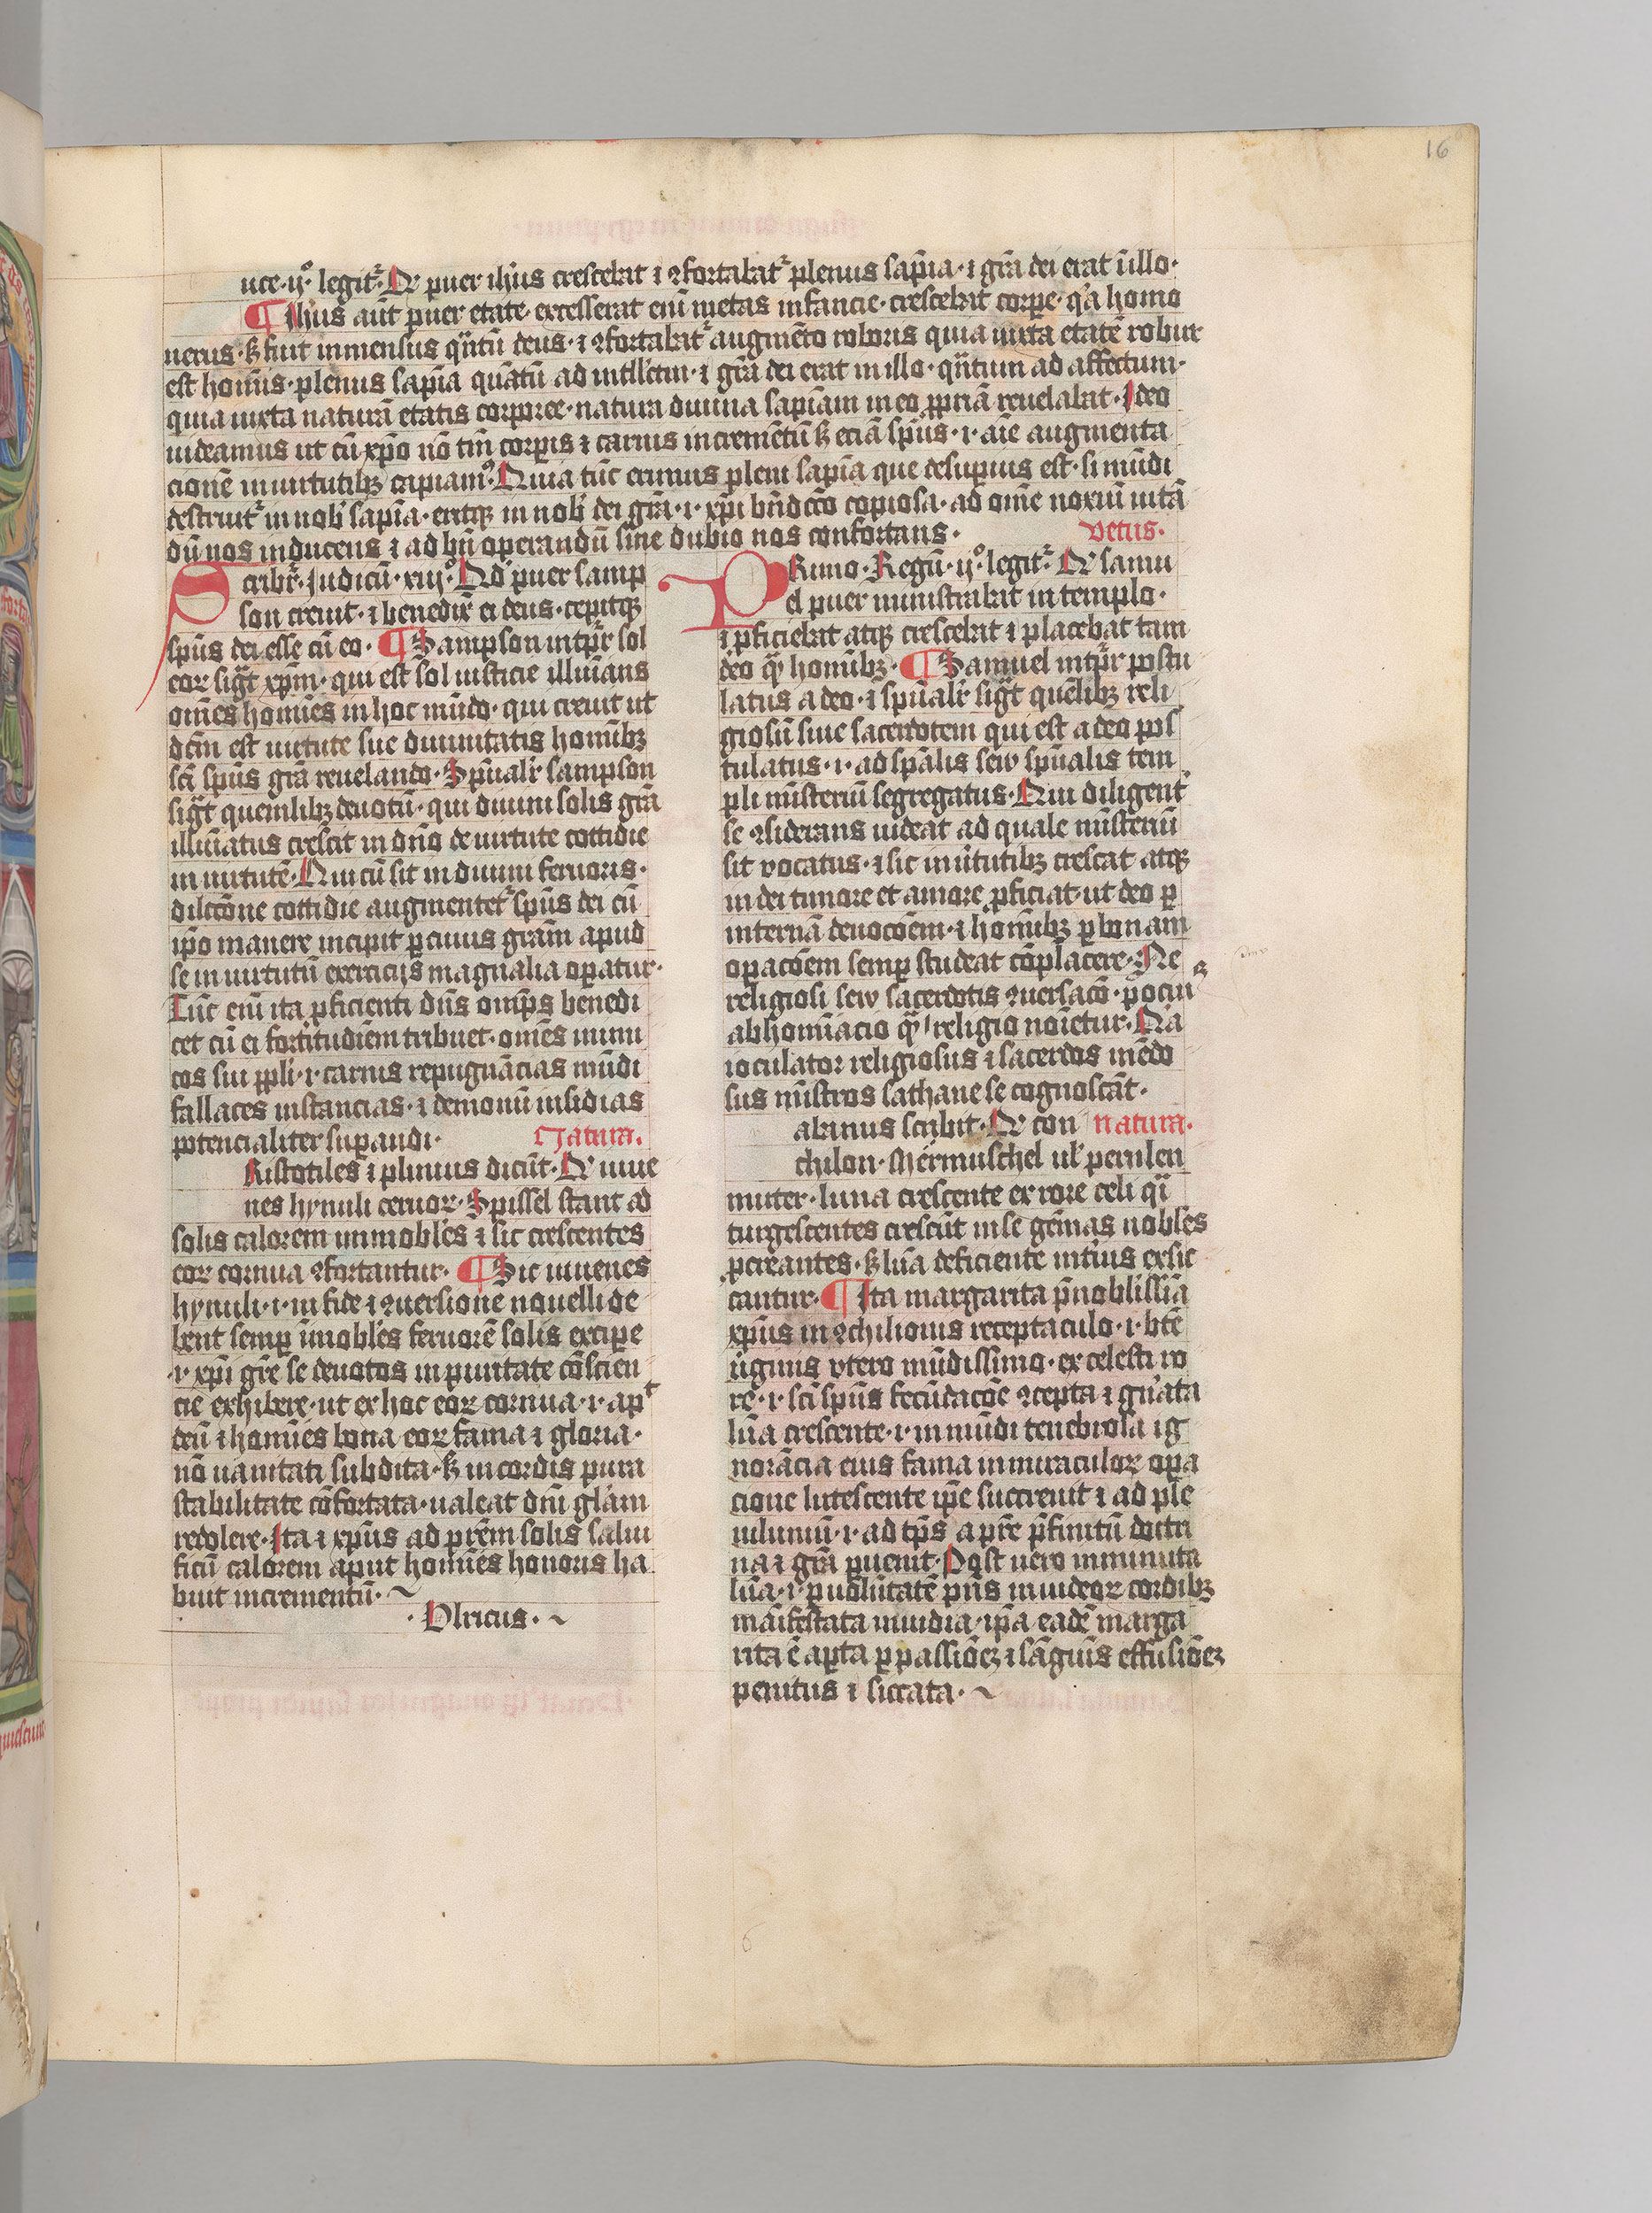 16
uce·ij°·legit᷑·Q puer ih̅us crescebat ⁊ ꝯfortabat᷑ plenus sap̅ia·⁊ gr̅a dei erat i̅ illo·
¶ Ih̅us aut̅ puer etate·excesserat eni̅ metas infancie·crescebat corpe·q̅a homo
uerus·sꝫ fuit inmensus qn̅tu̅ deus·⁊ ꝯfortabat᷑ augme̅to roboris quia iuxta etate̅ robur
est homi̅s·plenus sap̅ia qua̅tu̅ ad intll̅c̅m·⁊ gr̅a dei erat in illo·qn̅tum ad affectum·
quia iuxta natura̅ etatis corporee·natura diuina sap̅iam in eo ꝓpria̅ reuelabat·Ideo
uideamus ut cu̅ xp̅o no̅ tm̅ corp̅is ⁊ carnis increme̅tu̅ sꝫ ecia̅ sp̅us·i·ai̅e augmenta
cione̅ in uirtutibꝫ capiam⁹·Quia tu̅c erimus pleni sap̅ia que desup̅ius est·si mu̅di
destruit᷑ in nob̅ sap̅ia·eritqꝫ in nob̅ dei gr̅a·i·xp̅i bn̅dcc̅o copiosa·ad om̅e noxiu̅ uita̅
du̅ nos inducens ⁊ ad bn̅ operandu̅ sine dubio nos confortans·
Scribit᷑·Judicu̅·xiij°·Qd̅ puer samp
son creuit·⁊ benedix̅ ei deus·cepitqꝫ
sp̅us dei esse cu̅ eo·¶ Sampson int̅p̅r sol
eoꝝ sig̅t xp̅m·qui est sol iusticie illui̅ans
om̅es homi̅es in hoc mu̅do·qui creuit ut
dc̅m est uirtute sue diuinitatis homi̅bꝫ
sc̅i sp̅us gr̅a reuelando·Sp̅ualr̅ sampson
sig̅t quemlibꝫ deuotu̅·qui diuini solis gr̅a
illui̅atus crescit in dn̅o de uirtute cottidie
in uirtute̅·Qui cu̅ sit in diuini feruoris·
dilcc̅one cottidie augmentet᷑ sp̅us dei cu̅
ip̅o manere incipit p̅ cuius gr̅am apud
se in uirtutu̅ exercicijs magnalia op̅atur·
Tu̅c eni̅ ita ꝓficienti dn̅s om̅ps benedi
cet cu̅ ei fortitudi̅em tribuet·om̅es inimi
cos sui ppl̅i·i·carnis repugna̅cias mu̅di
fallaces instancias·⁊ demonu̅ insidias
potencialiter sup̅andi· Natura.
Ristotiles ⁊ plinius dicu̅t·Q iuue
nes hynuli ceruoꝝ·Spissel stant ad
solis calorem inmobl̅es ⁊ sic crescentes
eoꝝ cornua ꝯfortantur·¶ Sic iuuenes
hynuli·i·in fide ⁊ ꝯuersione nouelli de
bent semp̅ i̅mobl̅es feruore̅ solis excipe
·i·xp̅i gr̅e se deuotos in puritate co̅scien
cie exhibere·ut ex hoc eoꝝ cornua·i·ap̅t
deu̅ ⁊ homi̅es bona eoꝝ fama ⁊ gloria·
no̅ uanitati subdita·sꝫ in cordis pura
stabilitate co̅fortata·ualeat dn̅i gl̅am
redolere·Ita ⁊ xp̅us ad pr̅em solis salui
ficu̅ calorem aput homi̅es honoris ha
buit incrementu̅·~
·Vlricus·~
vetus·
PRimo·Regu̅·ij°·legit᷑·Q samu
el puer ministrabat in templo·
⁊ ꝓficiebat atqꝫ crescebat ⁊ placebat tam
deo q̅ homi̅bꝫ·¶ Samuel int̅p̅r postu
latus a deo·⁊ sp̅ualr̅ sig̅t que̅libꝫ reli
giosu̅ siue sacerdotem qui est a deo pos
tulatus·i·ad sp̅alis sew sp̅ualis tem
pli mi̅steriu̅ segregatus·Qui diligent̅
se ꝯsiderans uideat ad quale mi̅steriu̅
sit vocatus·⁊ sic in u̅tutibꝫ crescat atqꝫ
in dei timore et amore ꝓficiat·ut deo p̅
interna̅ deuoco̅em·⁊ homi̅bꝫ p̅ bonam
op̅aco̅em semp̅ studeat co̅placere·Ne
religiosi sew sacerdotis ꝯuersaco̅·pociu
abhomi̅acio q̅ religio noi̅etur·Na̅
ioculator religiosus ⁊ sacerdos me̅do
sus mi̅stros sathane se cognosca̅t·
abinus scribit·Q con natura·
chilon·Mermuschel ul̅ perulen
muter·luna crescente ex rore celi q̅i
turgescentes crescu̅t in se ge̅mas nobl̅es
ꝓcreantes·sꝫ lu̅a deficiente int̅ius exsic
cantur·¶ Ita margarita p̅nobl̅issi̅a
xp̅us in ꝯchilionis receptaculo·i·bt̅e
u̅ginis vtero mu̅dissimo·ex celesti ro
re·i·sc̅i sp̅us fecu̅daco̅e ꝯcepta ⁊ gn̅ata
lu̅a crescente·i·in mu̅di tenebrosa ig
nora̅cia eius fama in miraculoꝝ op̅a
cione lutescente ip̅e succreuit ⁊ ad ple
nilu̅niu̅·i·ad tp̅s a pr̅e p̅finitu̅ doctri
na ⁊ gr̅a p̅uenit·Post uero inminuta
lu̅a·i·p̅ uolu̅tate̅ pr̅is in iudeoꝝ cordibꝫ
ma̅ifestata inuidia·ip̅a eade̅ marga
rita e̅ ap̅ta p̅ passio̅eꝫ ⁊ sa̅gui̅s effusio̅eꝫ
penitus ⁊ siccata·~